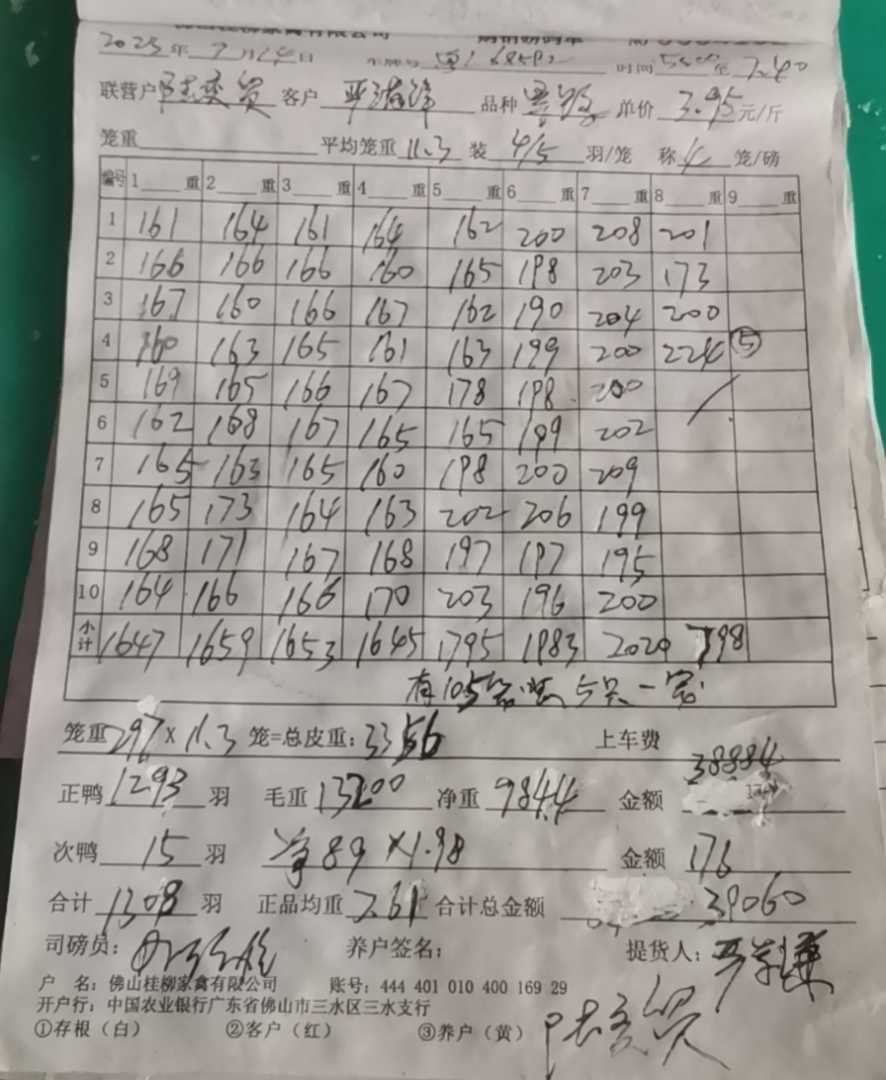 2025年7月14日 时间 至7.40
联营户 客户 品种 单价3.95元/斤
笼重 平均笼重11.3装4/5羽/笼 称4笼/磅
编号 1 重 2 重 3 重 4 重 5 重 6 重 7 重 8 重 9 重
1 161 164 161 164 162 200 208 201
2 166 166 166 160 165 198 203 173
3 167 160 166 167 162 190 204 200
4 160 163 165 161 163 199 200 224 ⑤
5 169 165 166 167 178 198 200
6 162 168 167 165 165 199 202
7 165 163 165 160 198 200 209
8 165 173 164 163 202 206 199
9 168 171 167 168 197 197 195
10 164 166 166 170 203 196 200
小计 1647 1659 1653 1645 1795 1983 2020 798
有105笼装5只一笼
笼重297×11.3笼=总皮重：3356 上车费
正鸭1293羽 毛重13200 净重9844 金额38884
次鸭15羽 净89×1.98 金额176
合计1308羽 正品均重7.61 合计总金额39060
司磅员： 养户签名： 提货人：
户 名：佛山桂柳家禽有限公司 账号：444 401 010 400 169 29
开户行：中国农业银行广东省佛山市三水区三水支行
①存根（白） ②客户（红） ③养户（黄）